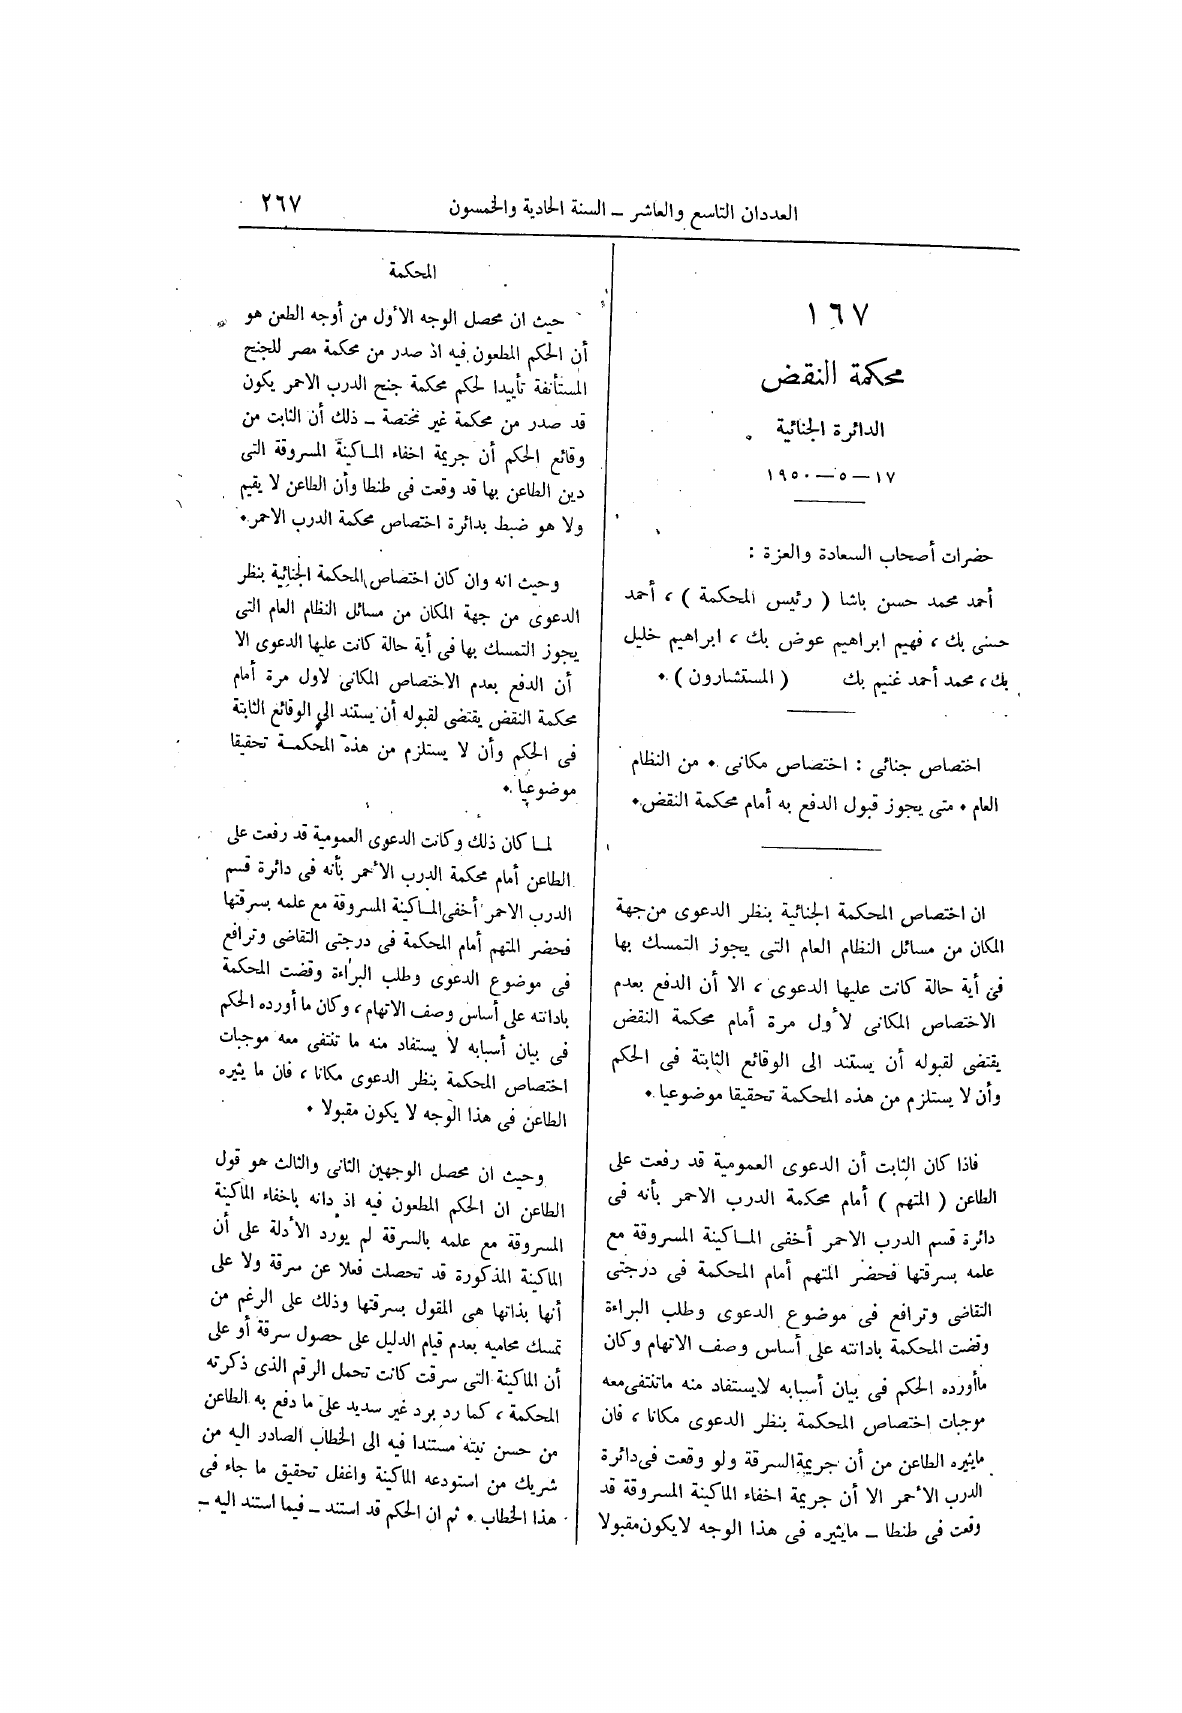 العددان التاسع والعاشر ــ السنة الحادية والخمسون
٢٦٧
١٦٧
محكمة النقض
الدائرة الجنائية
١٧ — ٥ — ١٩٥٠
حضرات أصحاب السعادة والعزة :
أحمد محمد حسن باشا ( رئيس المحكمة ) ، أحمد
حسنى بك ، فهيم ابراهيم عوض بك ، ابراهيم خليل
بك ، محمد أحمد غنيم بك ( المستشارون ) ٠
اختصاص جنائى : اختصاص مكانى ٠ من النظام
العام ٠ متى يجوز قبول الدفع به أمام محكمة النقض ٠
ان اختصاص المحكمة الجنائية بنظر الدعوى من جهة
المكان من مسائل النظام العام التى يجوز التمسك بها
فى أية حالة كانت عليها الدعوى ، الا أن الدفع بعدم
الاختصاص المكانى لأول مرة أمام محكمة النقض
يقتضى لقبوله أن يستند الى الوقائع الثابتة فى الحكم
وأن لا يستلزم من هذه المحكمة تحقيقا موضوعيا ٠
فاذا كان الثابت أن الدعوى العمومية قد رفعت على
الطاعن ( المتهم ) أمام محكمة الدرب الاحمر بأنه فى
دائرة قسم الدرب الاحمر أخفى المـاكينة المسروقة مع
علمه بسرقتها فحضر المتهم أمام المحكمة فى درجتى
التقاضى وترافع فى موضوع الدعوى وطلب البراءة
وقضت المحكمة بادانته على أساس وصف الاتهام وكان
ما أورده الحكم فى بيان أسبابه لا يستفاد منه ما تنتفى معه
موجبات اختصاص المحكمة بنظر الدعوى مكانا ، فان
ما يثيره الطاعن من أن جريمة السرقة ولو وقعت فى دائرة
الدرب الأحمر الا أن جريمة اخفاء الماكينة المسروقة قد
وقعت فى طنطا ــ ما يثيره فى هذا الوجه لا يكون مقبولا
المحكمة
حيث ان محصل الوجه الأول من أوجه الطعن هو
أن الحكم المطعون فيه اذ صدر من محكمة مصر للجنح
المستأنفة تأييدا لحكم محكمة جنح الدرب الاحمر يكون
قد صدر من محكمة غير مختصة ــ ذلك أن الثابت من
وقائع الحكم أن جريمة اخفاء المـاكينة المسروقة التى
دين الطاعن بها قد وقعت فى طنطا وأن الطاعن لا يقيم
ولا هو ضبط بدائرة اختصاص محكمة الدرب الاحمر ٠
وحيث انه وان كان اختصاص المحكمة الجنائية بنظر
الدعوى من جهة المكان من مسائل النظام العام التى
يجوز التمسك بها فى أية حالة كانت عليها الدعوى الا
أن الدفع بعدم الاختصاص المكانى لاول مرة أمام
محكمة النقض يقتضى لقبوله أن يستند الى الوقائع الثابتة
فى الحكم وأن لا يستلزم من هذه المحكمـة تحقيقا
موضوعيا ٠
لمـا كان ذلك وكانت الدعوى العمومية قد رفعت على
الطاعن أمام محكمة الدرب الأحمر بأنه فى دائرة قسم
الدرب الاحمر أخفى المـاكينة المسروقة مع علمه بسرقتها
فحضر المتهم أمام المحكمة فى درجتى التقاضى وترافع
فى موضوع الدعوى وطلب البراءة وقضت المحكمة
بادانته على أساس وصف الاتهام ، وكان ما أورده الحكم
فى بيان أسبابه لا يستفاد منه ما تنتفى معه موجبات
اختصاص المحكمة بنظر الدعوى مكانا ، فان ما يثيره
الطاعن فى هذا الوجه لا يكون مقبولا ٠
وحيث ان محصل الوجهين الثانى والثالث هو قول
الطاعن ان الحكم المطعون فيه اذ دانه باخفاء الماكينة
المسروقة مع علمه بالسرقة لم يورد الأدلة على أن
الماكينة المذكورة قد تحصلت فعلا عن سرقة ولا على
أنها بذاتها هى المقول بسرقتها وذلك على الرغم من
تمسك محاميه بعدم قيام الدليل على حصول سرقة أو على
أن الماكينة التى سرقت كانت تحمل الرقم الذى ذكرته
المحكمة ، كما رد برد غير سديد على ما دفع به الطاعن
من حسن نيته مستندا فيه الى الخطاب الصادر اليه من
شريك من استودعه الماكينة واغفل تحقيق ما جاء فى
هذا الخطاب ٠ ثم ان الحكم قد استند ــ فيما استند اليه ــ